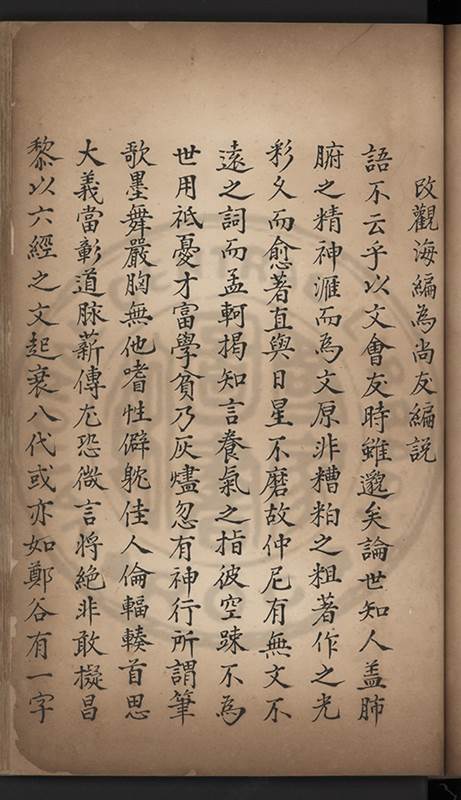 改觀海編為尚友編說
語不云乎以文會友時雖邈矣論世知人盖肺
腑之精神滙而為文原非糟粕之粗著作之光
彩久而愈著直與日星不磨故仲尼有無文不
遠之詞而孟軻揭知言養氣之指彼空踈不為
世用祗憂才富學貧乃灰燼忽有神行所謂筆
歌墨舞嚴胸無他嗜性僻躭佳人倫輻輳首思
大義當彰道脉薪傳尤恐微言將絕非敢擬昌
黎以六經之文起衰八代或亦如鄭谷有一字